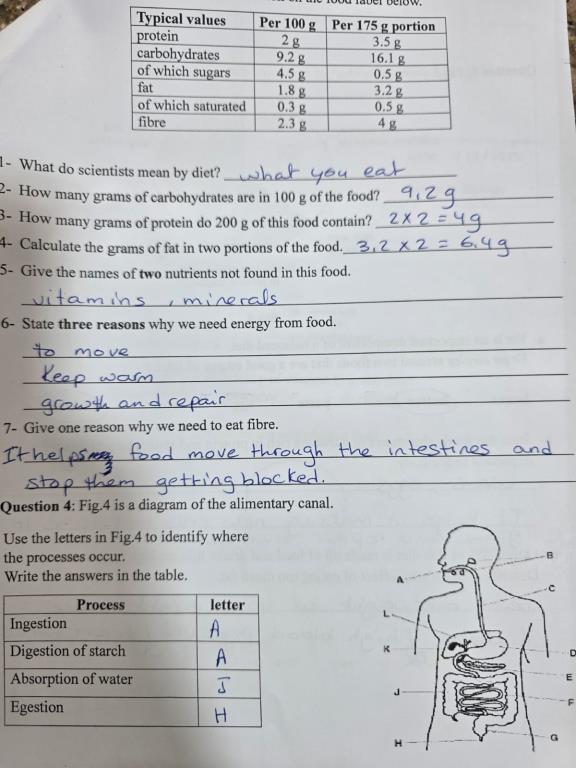 the food label below.
Typical values Per 100 g Per 175 g portion
protein 2 g 3.5 g
carbohydrates 9.2 g 16.1 g
of which sugars 4.5 g 0.5 g
fat 1.8 g 3.2 g
of which saturated 0.3 g 0.5 g
fibre 2.3 g 4 g
1- What do scientists mean by diet? what you eat
2- How many grams of carbohydrates are in 100 g of the food? 9,2 g
3- How many grams of protein do 200 g of this food contain? 2 x 2 = 4g
4- Calculate the grams of fat in two portions of the food. 3,2 x 2 = 6,4g
5- Give the names of two nutrients not found in this food.
vitamins , minerals
6- State three reasons why we need energy from food.
to move
Keep warm
growth and repair
7- Give one reason why we need to eat fibre.
It helps food move through the intestines and
stop them getting blocked.
Question 4: Fig.4 is a diagram of the alimentary canal.
Use the letters in Fig.4 to identify where
the processes occur.
Write the answers in the table.
Process letter
Ingestion A
Digestion of starch A
Absorption of water J
Egestion H
A
B
C
L
K
D
E
J
F
G
H